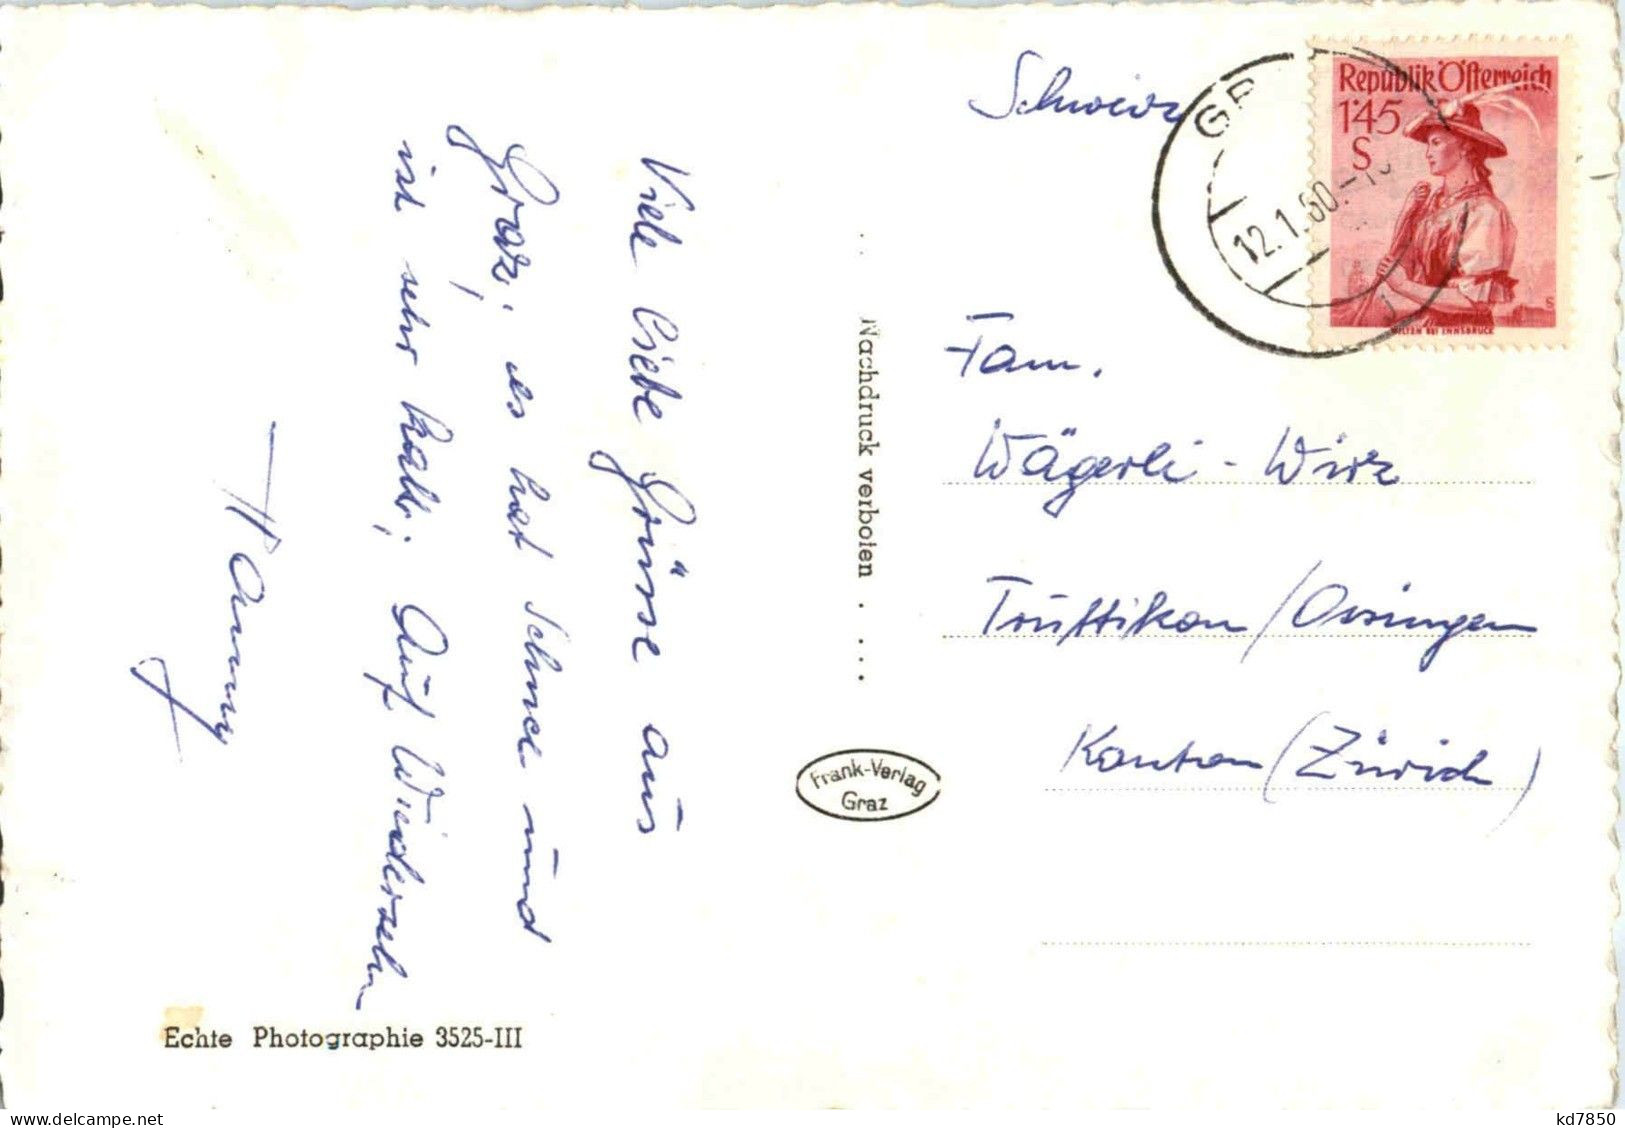 Viele liebe Grüsse aus
Graz, es hat Schnee und
ist sehr kalt. Auf Wiedersehn
Hanny
Echte Photographie 3525-III
Nachdruck verboten
Frank-Verlag
Graz
Schweiz
12.1.60.
Republik Österreich
1'45
S
BEI INNSBRUCK
Fam.
Wägerli - Wirz
Truttikon / Ossingen
Kanton (Zürich)
delcampe.net
kd7850